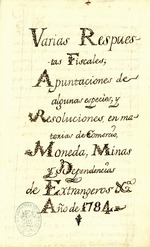 Varias Respues-
tas Fiscales,
Apuntaciones de
algunas especies, y
Resoluciones, en ma-
terias de Comercio,
Moneda, Minas
y Dependencias
de Extrangeros &a.
Año de 1784.